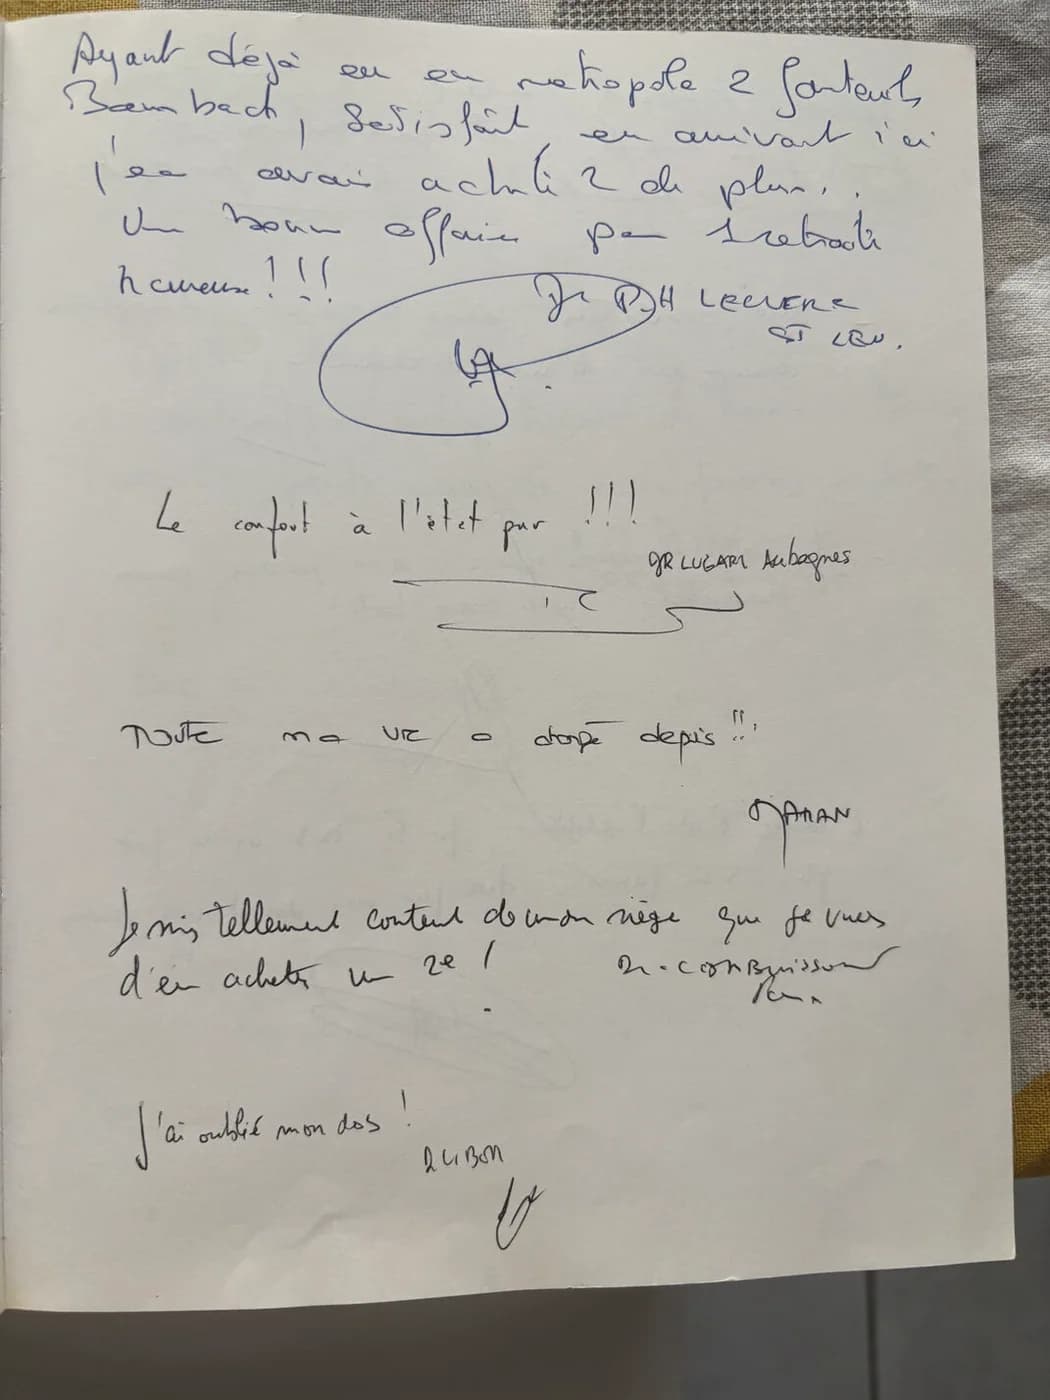 Ayant déjà eu en métropole 2 fauteuils
Baumbach, satisfait, en arrivant ici
j'en avais acheté 2 de plus..
Une bonne affaire pour 1 retraite
heureuse !!!
Dr P.H LECLERC
ST LEU.
Le confort à l'état pur !!!
DR LUGARI Aubagnes
Toute ma vie a changé depuis !!
Je suis tellement content de mon siège que je viens
d'en acheter un 2e !
J'ai oublié mon dos !